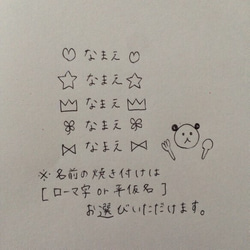 なまえ
なまえ
なまえ
なまえ
なまえ
※名前の焼き付けは
[ローマ字 or 平仮名]
お選びいただけます。